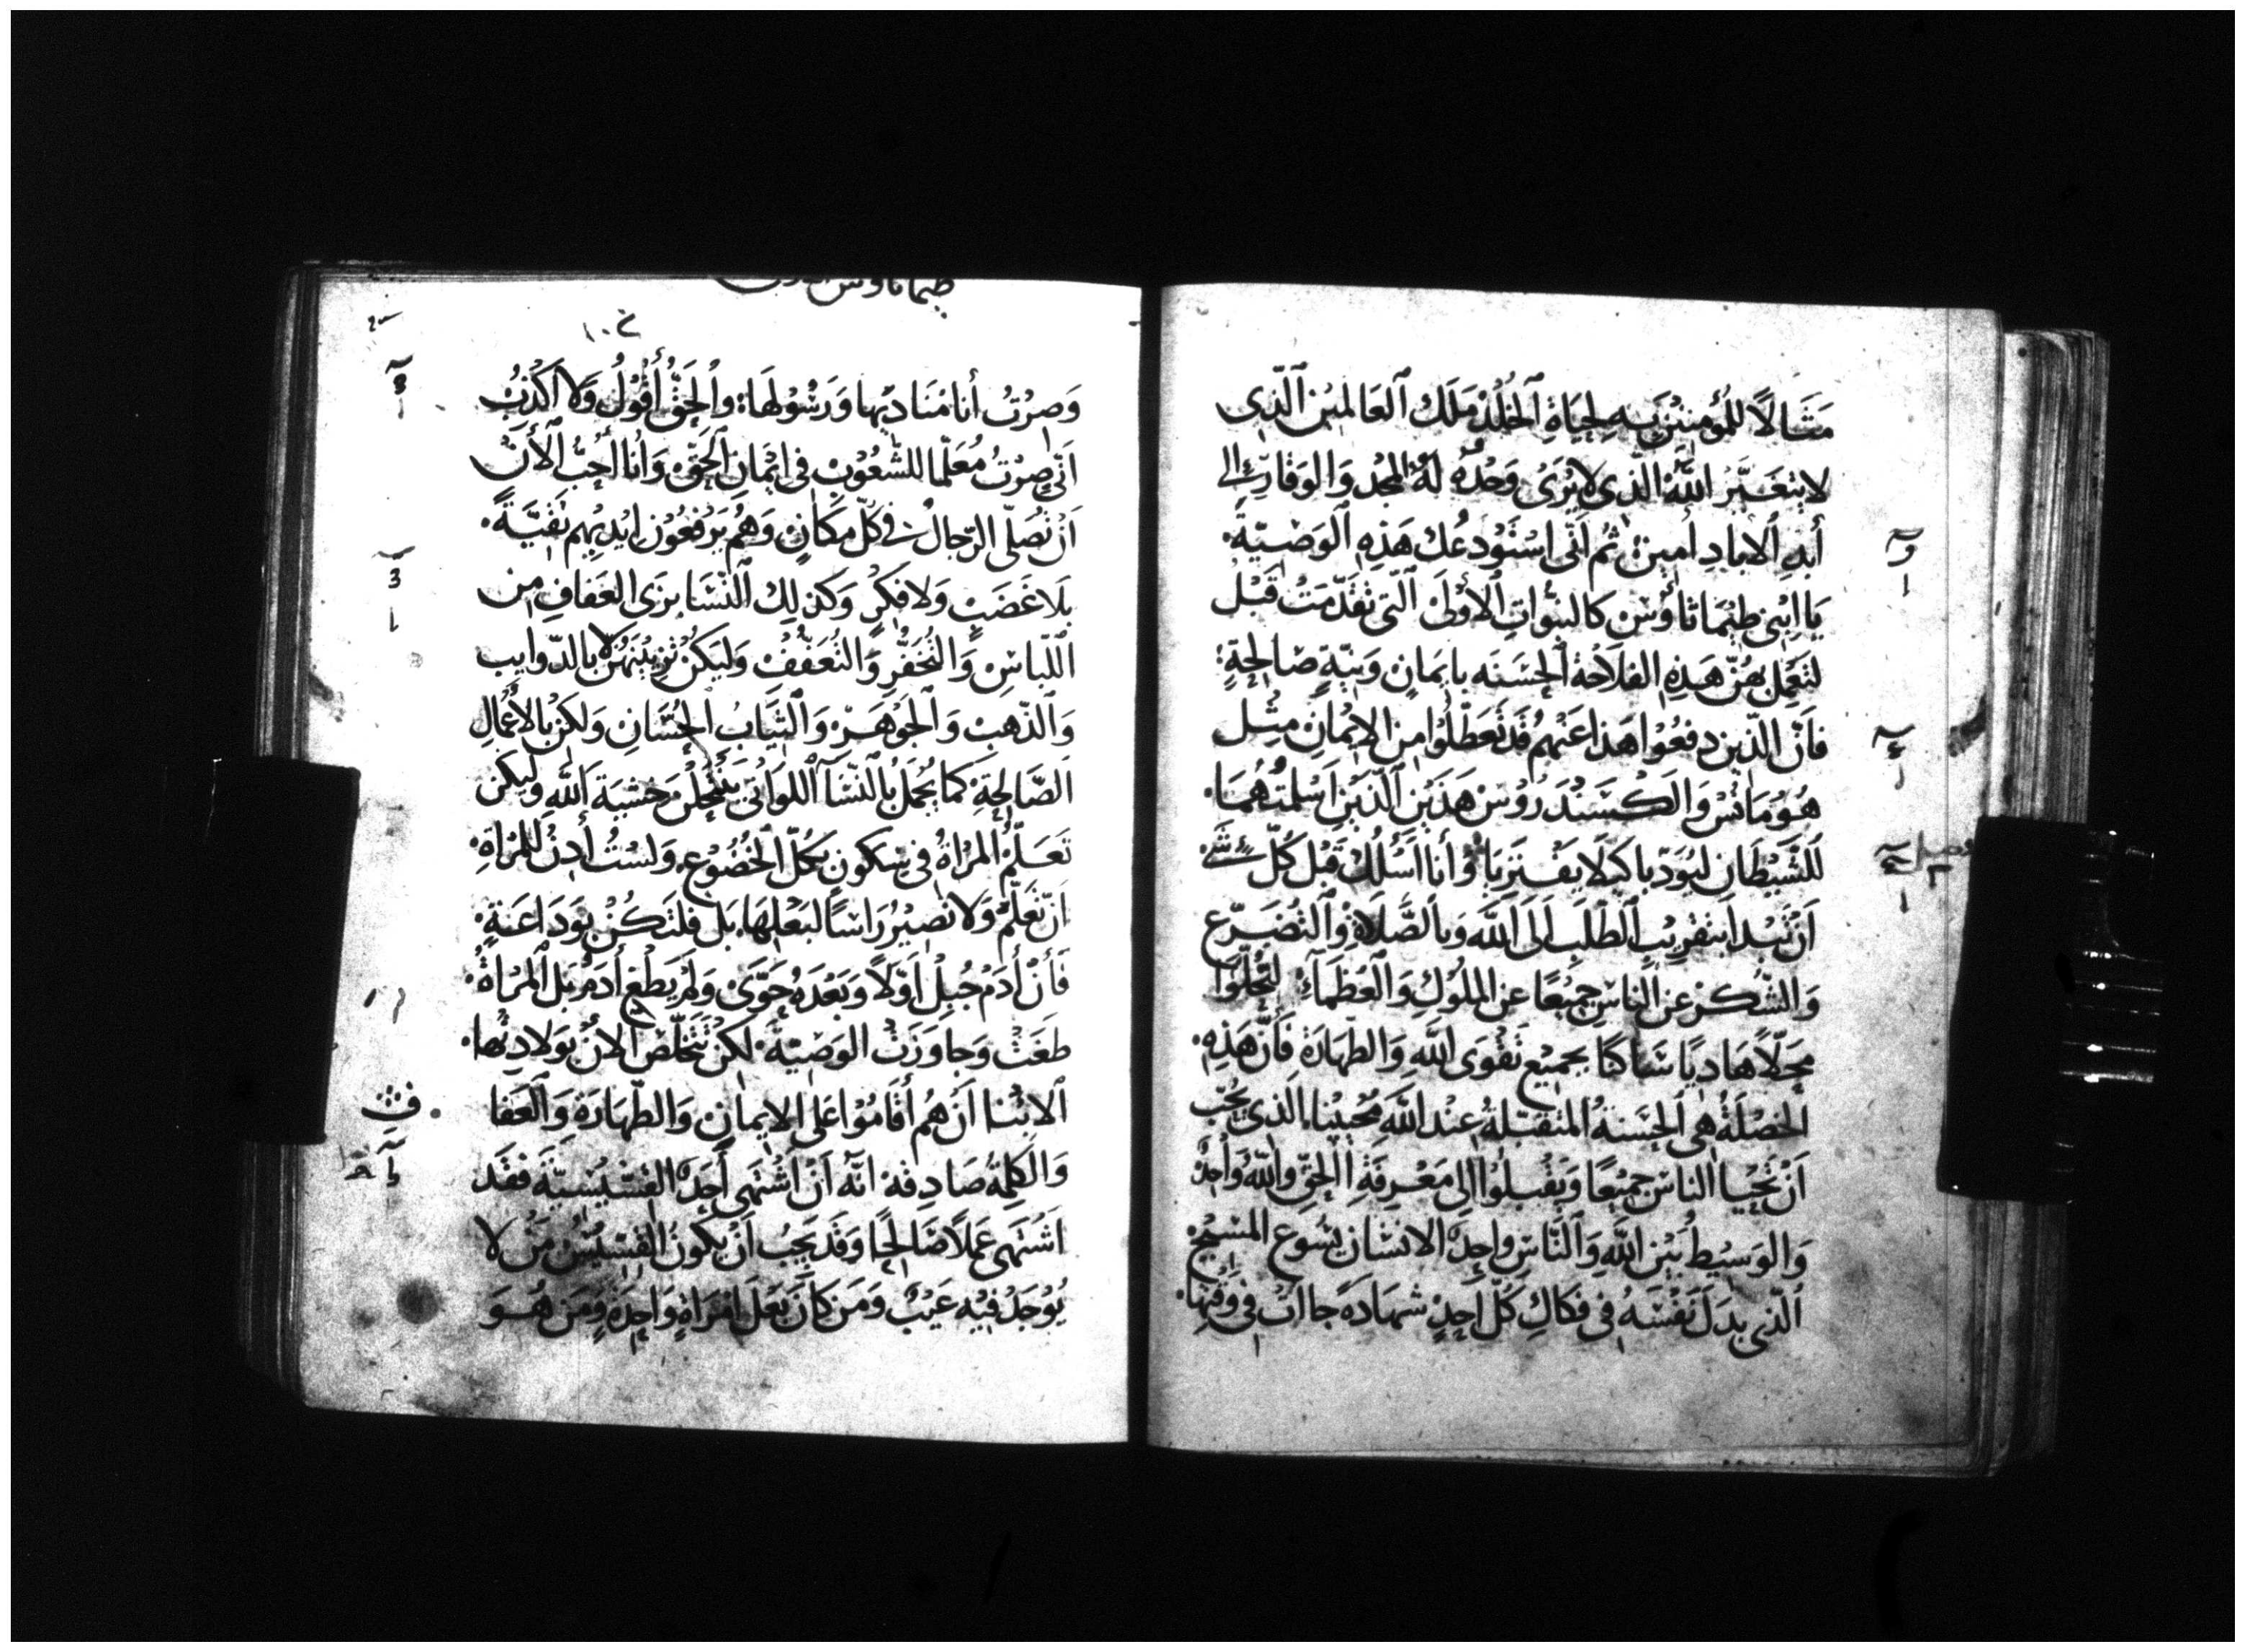 مَثَالًا للمُؤمِنينَ بِهِ لِحيَاةِ ٱلخُلدْ مَلَك ٱلعَالميْن ٱلَّذِى
لا يتغَيَّرُ اللّهُ الذّى لا يُرَىْ وَحْدُهُ لَهُ المجْد وَالوَقارُ الى
أبَدِ ٱلاَبادِ أمين ثم انّى اسْتَوْدعُك هَذِهِ ٱلوَصْيَّة
يَا ابْنِى طِيْمَاثاؤُسْ كالنبُوّاتِ ٱلأوْلىْ ٱلّتى تقَدّمَتْ قَبْلُ
لتعْمِل بهُنّ هَذِهِ الفلاحَة ٱلحسَنه بايمَانٍ وَنيّةٍ صَالحةٍ
فاَنّ الّذين دفعُوْا هَذا عَنْهم قَد تعَطّلُوْا من الايْمانِ مثْل
هُوْمَانُسْ وَالَكسَنْدَرُوسْ هَذَيْن ٱلّذَيْنِ اَسْلمتُهُمَا
للشَّيْطَانِ ليُوَدّبا كيلا يفْتريَا وَأنا اَسْئلُكَ قَبْل كُلّ شَئ
اَنْ تَبْدا بتقْريْبِ ٱلطّلبِ الَى ٱللّه وَبالصَّلاةِ وٱلتضَرّع
وَالشّكرْ عَن الناسِ جميْعًا عن الملُوكِ وَٱلعُظَمَآءِ لتحُلوا
مَحلّاً هَاديًا سَاكنًا بجميْع تقْوَى اللّهِ وَالطّهَارَة فاَنّ هَذِهِ
الخصْلَةُ هى الحسَنةُ المتَقبّلةُ عنْد اللّه مُحيْيْنا الذى يحُبّ
اَنْ تَحْيَا الناسْ جميْعًا وَيقْبلُوْا الى مَعْرِفَةِ الحَقّ واللّه وَاحدٌ
وَالوَسيْط بَيْن اللّهِ وَالنّاسِ واحدٌ الانسَان يسُوع المسيْح
الّذى بدَلَ نَفْسَهُ فى فَكاكِ كُلّ اَحدٍ شهادَةً جاات فى وَقتِها
طيماثاوس الاولى
وَصرْتُ أنا مُنَاديْها وَرَسُوْلهَا وٱلحَقّ أقُوْلُ وَلا اَكْذبُ
انّى صِرْتُ مُعَلّمًا للشّعُوْبِ فى ايْمان ٱلحَقّ وَانا أحبُّ ٱلأنْ
اَنْ تُصَلّى الرّجالُ فى كلّ مكَانٍ وَهُم يَرْفعُوْن ايْديْهم نَقيّةً
بلاَ غَضَبٍ وَلا فكِرٍ وَكذلِك ٱلنّسَا بزَى العَفافِ من
اللّباسِ وَالتُخَفُّرِ وَالتعَفُّفْ وَليَكُنْ تزيْينَهُنّ لا بالدّوايب
وَالذّهبْ وَٱلجَوْهَرْ وَٱلثيَابُ الحُسَّانِ وَلكنْ بالأعْمالِ
الصَّالحةِ كمَا يجْمَلُ بالنّسَآ اللوَاتى يَنْتَحلن خَشْيَة اللّهِ وَليكن
تعَلّمُ المرْاة فى سكونٍ بكُلّ الخُضُوْع وَلسْتُ أدِنُ للمرْاةِ
انّ تعَلّم وَلا تصِيْرُ رَاسًا لبَعْلِهَا بَل فلتَكُنْ بوَدَاعَةٍ
فَأنْ أدَمْ جُبِلَ أوّلاً وَبَعْدَهُ حَوّىْ وَلَمْ يَطْغ أدَمُ بَل المرْاةُ
طَغتْ وَجاوَزَتْ الوَصْيّة لكنْ تتخَلّصْ الأنْ بولادتها
الابْنا اَنْ هُم أقَامُوْا عَلى الايمان وَالطّهَارَةِ وَٱلعَفا
وَالكلِمة صَادِقة انّه اَنْ اشْتَهى أحَدٌ القسّيْسيّة فقَد
اشْتَهى عَملاً صَالحًا وَقَد يَجبُ اَنْ يكونُ القسّيْسُ مَنْ لا
يُوْجَدْ فيْه عَيْبٌ وَمَن كاَنَ بَعْلَ امْرَاةٍ وَاحدَةٍ وَمَن هُوَ